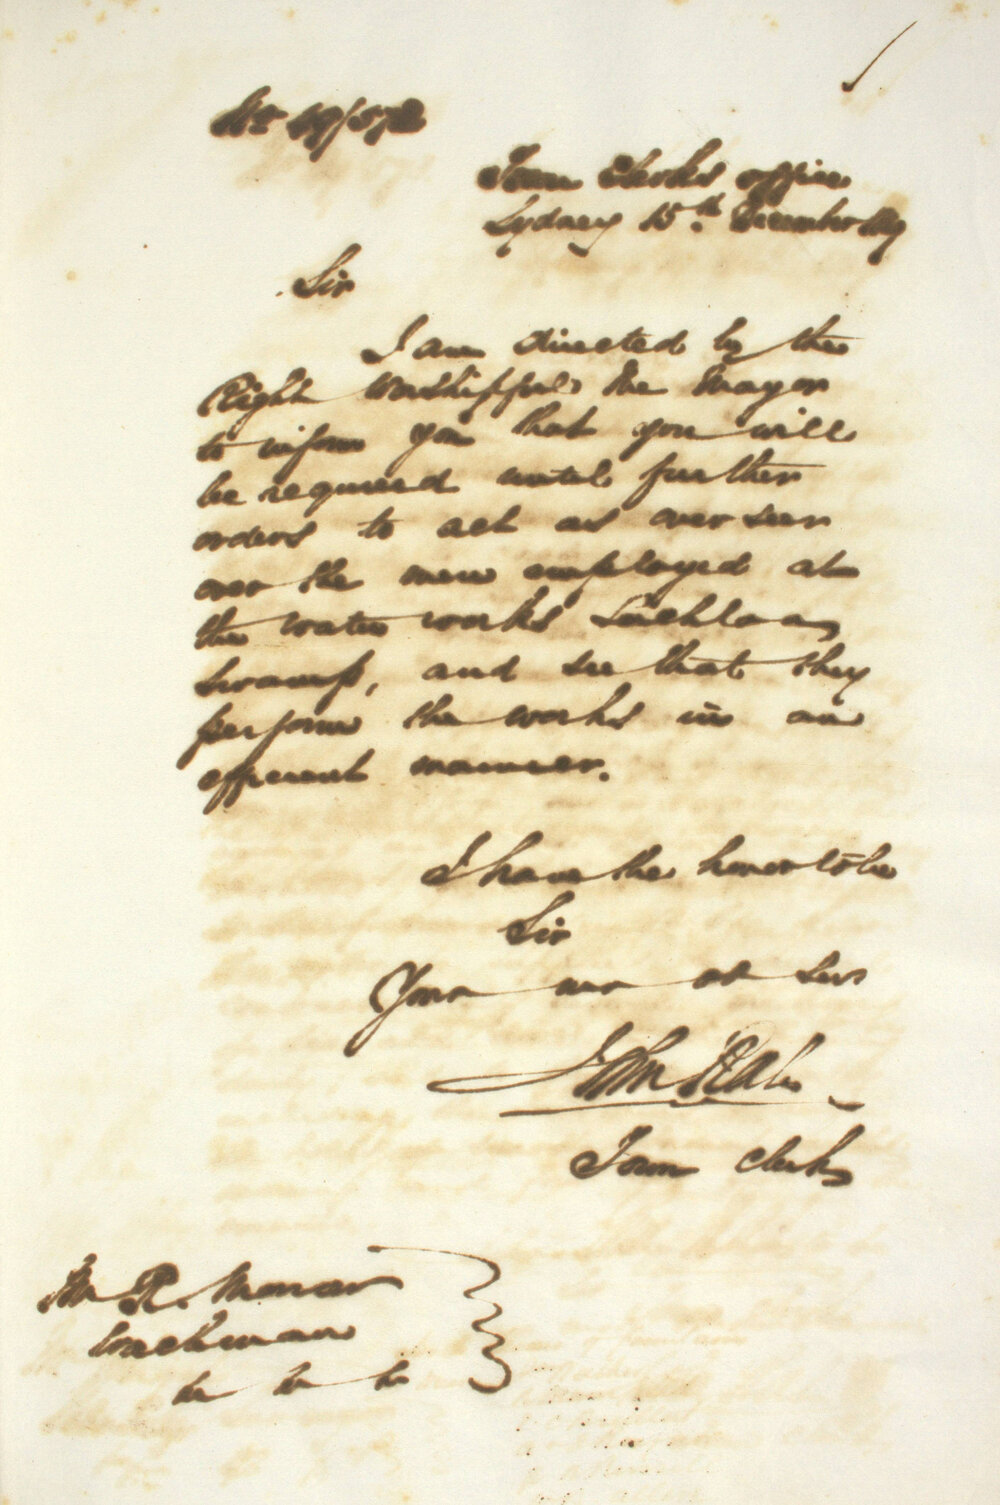 No 49/572
Town Clerks office
Sydney 15th December 1849
Sir
I am directed by the
Right Worshipful the Mayor
to inform you that you will
be required until further
orders to act as overseer
over the men employed at
the water works Lachlan
Swamp, and see that they
perform the works in an
efficient manner.
I have the honor to be
Sir
Your ob Ser
John
Town Clerk
Mr R.